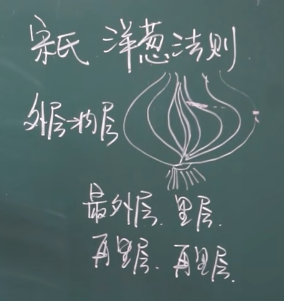 宋氏 洋葱法则
外层→内层
最外层、里层、
再里层、再里层、